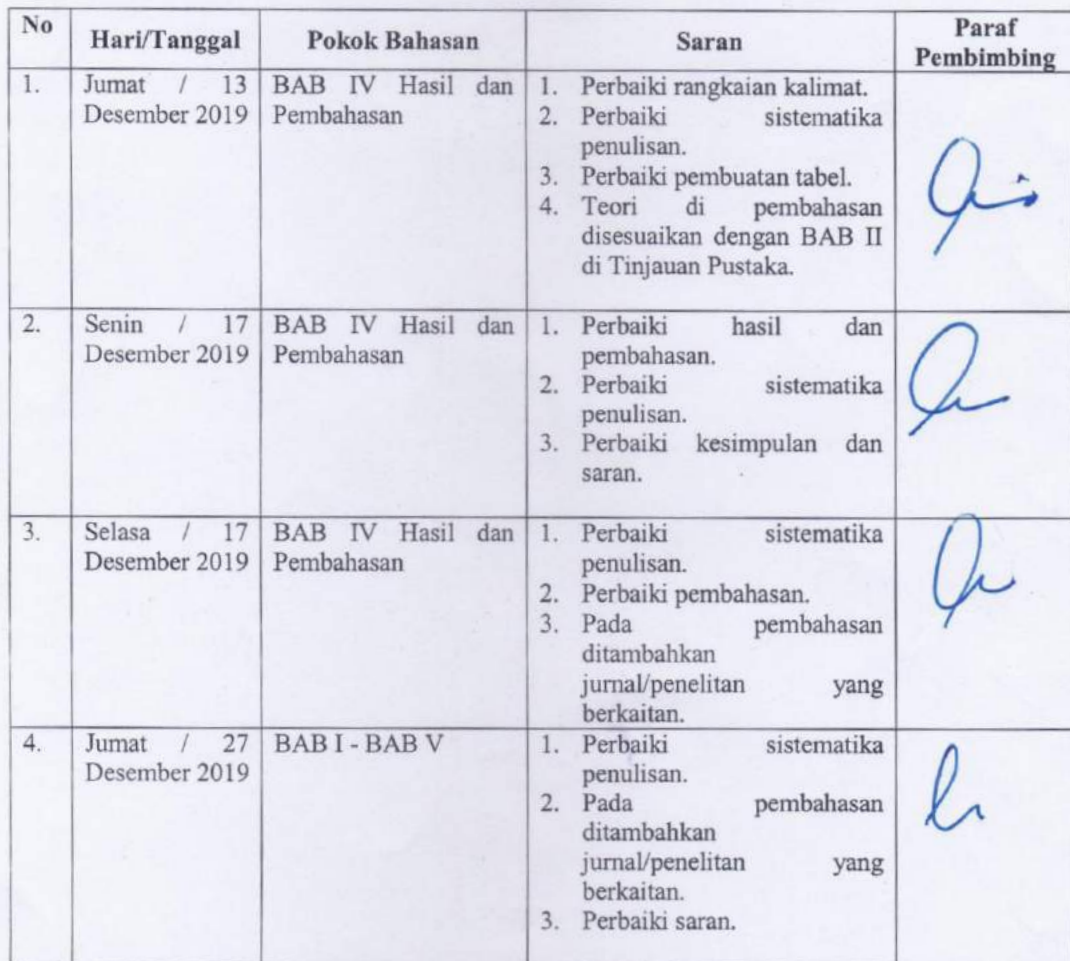 No Hari/Tanggal Pokok Bahasan Saran Paraf Pembimbing
1. Jumat / 13 Desember 2019
BAB IV Hasil dan Pembahasan
1. Perbaiki rangkaian kalimat.
2. Perbaiki sistematika
penulisan.
3. Perbaiki pembuatan tabel.
4. Teori di pembahasan
disesuaikan dengan BAB II
di Tinjauan Pustaka.
2. Senin / 17 Desember 2019
BAB IV Hasil dan Pembahasan
1. Perbaiki hasil dan
pembahasan.
2. Perbaiki sistematika
penulisan.
3. Perbaiki kesimpulan dan
saran.
3. Selasa / 17 Desember 2019
BAB IV Hasil dan Pembahasan
1. Perbaiki sistematika
penulisan.
2. Perbaiki pembahasan.
3. Pada pembahasan
ditambahkan
jurnal/penelitan yang
berkaitan.
4. Jumat / 27 Desember 2019
BAB I - BAB V
1. Perbaiki sistematika
penulisan.
2. Pada pembahasan
ditambahkan
jurnal/penelitan yang
berkaitan.
3. Perbaiki saran.